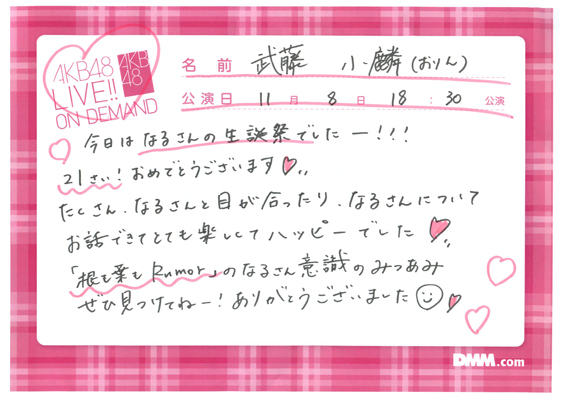 AKB48
LIVE!!
ON DEMAND
AKB
48
名前 武藤 小麟(おりん)
公演日 11月 8日 18:30 公演
今日はなるさんの生誕祭でしたー!!!
21さい!おめでとうございます♥
たくさん、なるさんと目が合ったり、なるさんについて
お話できてとても楽しくてハッピーでした♥
「根も葉もRumor」のなるさん意識のみつあみ
ぜひ見つけてねー!ありがとうございました☺♥
DMM.com